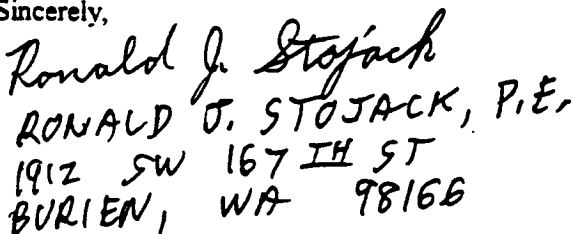 Sincerely,
Ronald J. Stojack
RONALD J. STOJACK, P.E.
1912 SW 167 TH ST
BURIEN, WA 98166